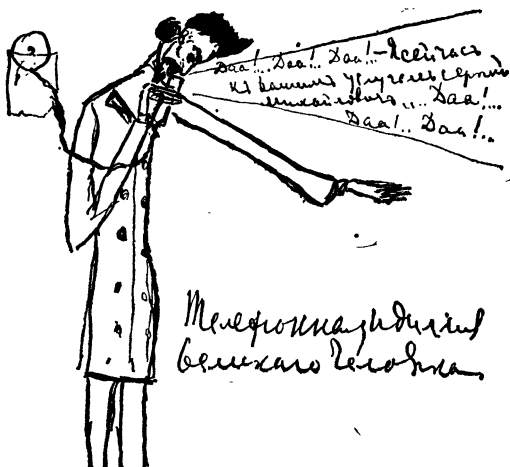 Даа!... Даа!.. Даа!—Я сейчасъ
къ вашимъ услугамъ Сергѣй
Михайловичъ.... Даа!...
Даа!.. Даа!..
Телефонная идиллія
великаго Человѣка